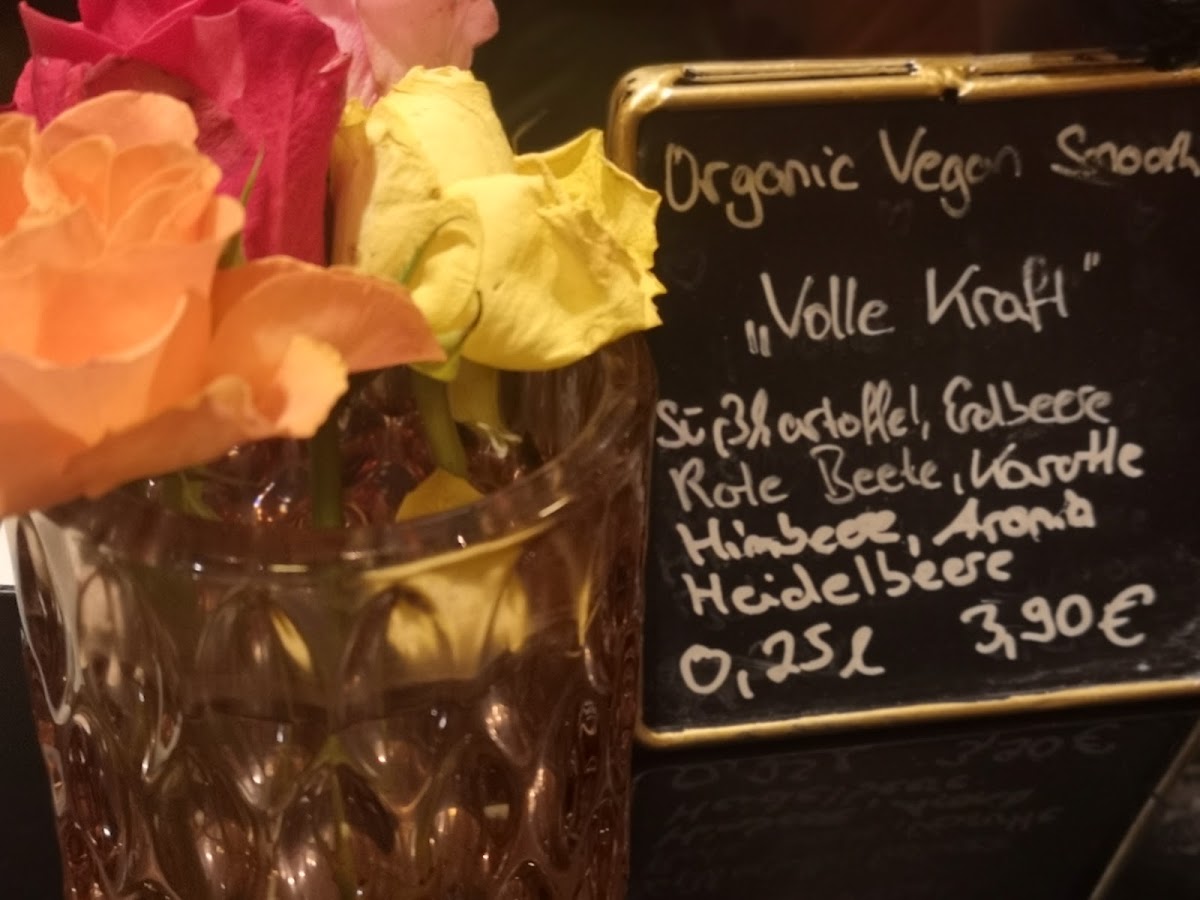 Organic Vegan Smooth
„Volle Kraft"
Süßkartoffel, Erdbeere
Rote Beete, Karotte
Himbeere, Aronia
Heidelbeere
0,25l 3,90€